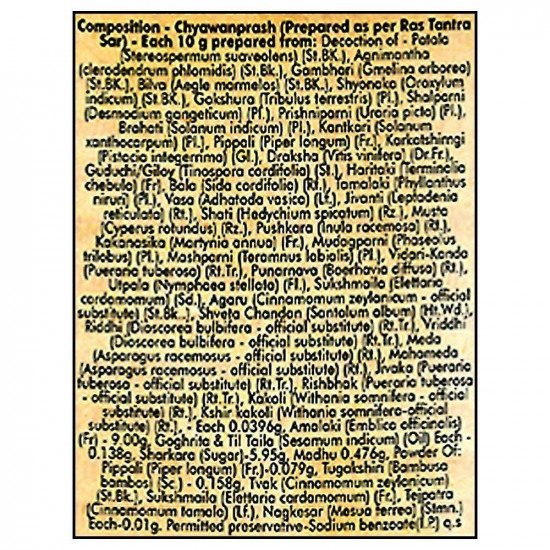 Composition - Chyawanprash (Prepared as per Ras Tantra
Sar) - Each 10 g prepared from: Decoction of - Patala
(Stereospermum suaveolens) (St.BK.), Agnimantha
(clerodendrum phlomidis) (St.Bk.), Gambhari (Gmelina arborea)
(St.BK.), Bilva (Aegle marmelos) (St.Bk.), Shyonaka (Oroxylum
indicum) (St.BK.), Gokshura (Tribulus terrestris) (Pl.), Shalparni
(Desmodium gangeticum) (Pl.), Prishniparni (Uraria picta) (Pl.),
Brahati (Solanum indicum) (Pl.), Kantkari (Solanum
xanthocarpum) (Pl.), Pippali (Piper longum) (Fr.), Karkatshirngi
(Pistacia integerrima) (Gl.), Draksha (Vitis vinifera) (Dr.Fr.),
Guduchi/Giloy (Tinospora cordifolia) (St.), Haritaki (Terminalia
chebula) (Fr), Bala (Sida cordifolia) (Rt.), Tamalaki (Phyllanthus
niruri) (Pl.), Vasa (Adhatoda vasica) (Lf.), Jivanti (Leptadenia
reticulata) (Rt.), Shati (Hedychium spicatum) (Rz.), Musta
(Cyperus rotundus) (Rz.), Pushkara (Inula racemosa) (Rt.),
Kakanasika (Martynia annua) (Fr.), Mudagparni (Phaseolus
trilobus) (Pl.), Mashparni (Teramnus labialis) (Pl.), Vidari-Kanda
(Pueraria tuberosa) (Rt.Tr.), Punarnava (Boerhavia diffusa) (Rt.),
Utpala (Nymphaea stellata) (Fl.), Suksmaila (Elettaria
cardamomum) (Sd.), Agaru (Cinnamomum zeylanicum - official
substitute) (St.Bk..), Shveta Chandan (Santalum album) (Ht.Wd.),
Riddhi (Dioscorea bulbifera - official substitute) (Rt.Tr.), Vriddhi
(Dioscorea bulbifera - official substitute) (Rt.Tr.), Meda
(Asparagus racemosus - official substitute) (Rt.), Mahameda
(Asparagus racemosus - official substitute) (Rt.), Jivaka (Pueraria
tuberosa - official substitute) (Rt.Tr.), Rishbhak (Pueraria tuberosa
- official substitute) (Rt.Tr.), Kakoli (Withania somnifera - official
substitute) (Rt.), Kshir kakoli (Withania somnifera-official
substitute) (Rt.), - Each 0.0396g, Amalaki (Emblica officinalis)
(Fr) - 9.00g, Goghrita & Til Taila (Sesamum indicum) (Oil) Each -
0.138g, Sharkara (Sugar)-5.95g, Madhu 0.476g, Powder Of:
Pippali (Piper longum) (Fr.)-0.079g, Tugakshiri (Bambusa
bambos) (Sc.) - 0.158g, Tvak (Cinnamomum zeylanicum)
(St.Bk.), Sukshmaila (Elettaria cardamomum) (Fr.), Tejpatra
(Cinnamomum tamala) (Lf.), Nagkesar (Mesua ferrea) (Stmn.)
Each-0.01g. Permitted preservative-Sodium benzoate(I.P) q.s